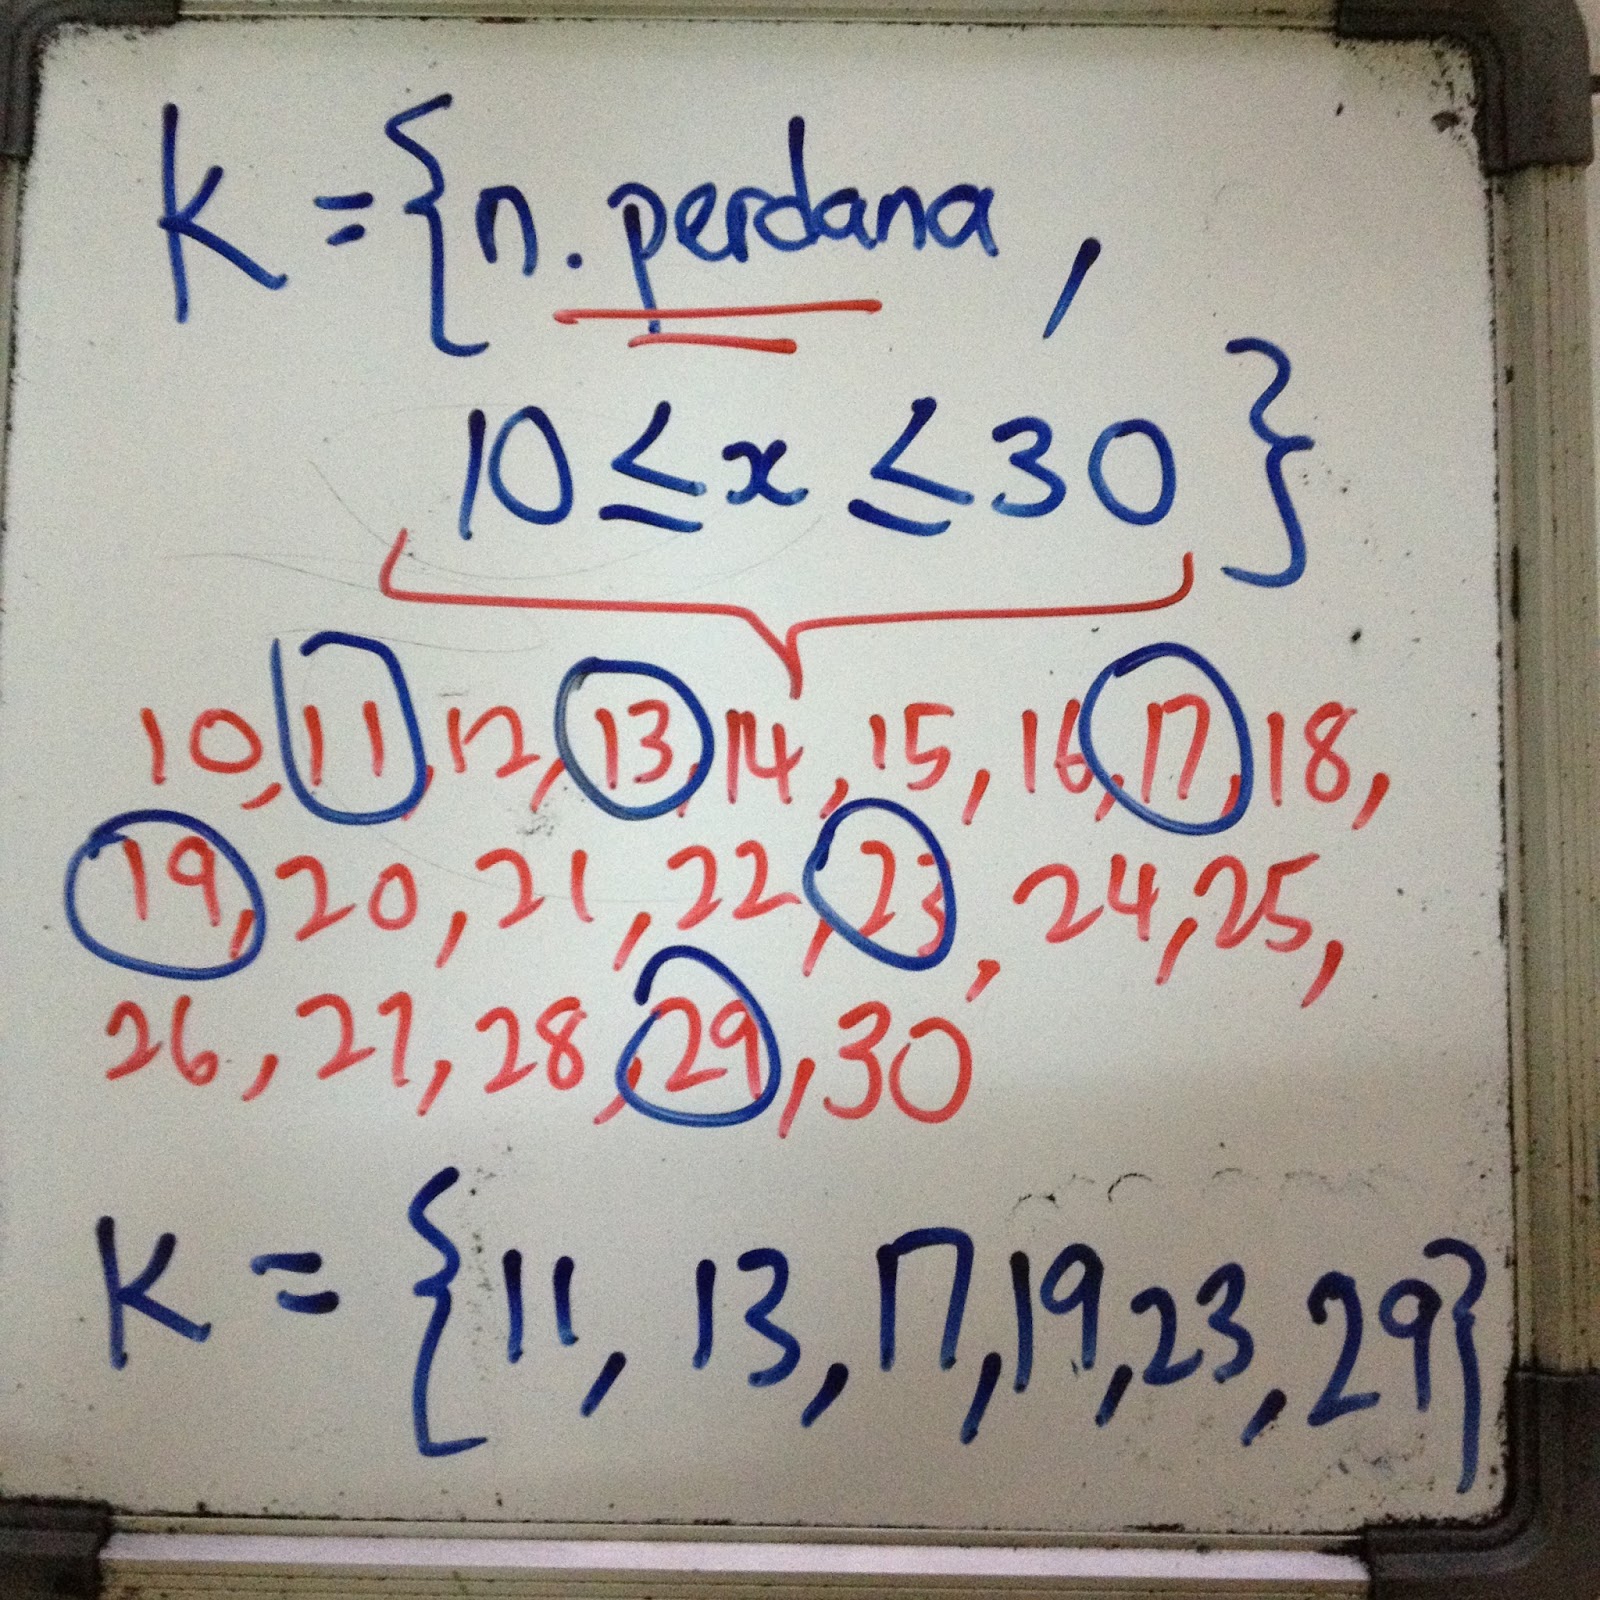 K = {n. perdana,
10 ≤ x ≤ 30}
10, 11, 12, 13, 14, 15, 16, 17, 18,
19, 20, 21, 22, 23, 24, 25,
26, 27, 28, 29, 30
K = {11, 13, 17, 19, 23, 29}